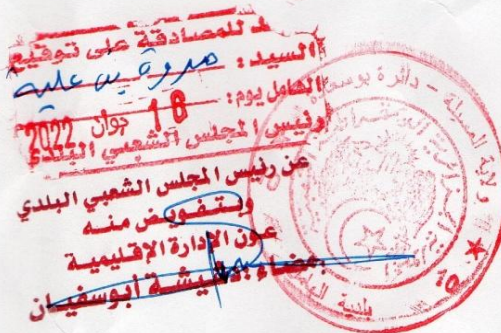 للمصادقة على توقيع
السيد : مروة بن علية
الماثل يوم : 16 جوان 2022
رئيس المجلس الشعبي البلدي
عن رئيس المجلس الشعبي البلدي
وبتفويض منه
عون الإدارة الإقليمية
أبوسفيان
ولاية المسيلة - دائرة بوسعادة
بلدية